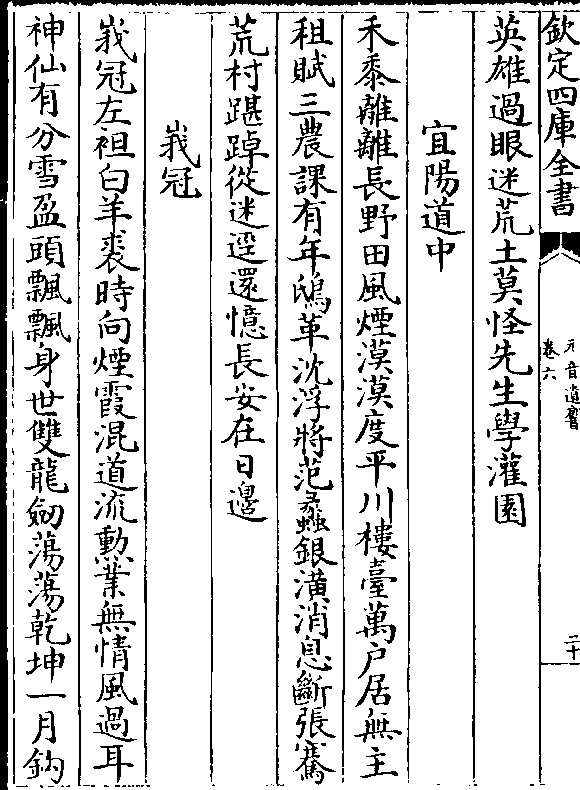 欽定四庫全書
元音遺響
卷六
二十
英雄過眼迷荒土莫怪先生學灌園
宜陽道中
禾黍離離長野田風煙漠漠度平川樓臺萬户居無主
租賦三農課有年鴟革沈浮將范蠡銀潢消息斷張騫
荒村踸踔從迷逕還憶長安在日邊
峩冠
峩冠左袒白羊裘時向煙霞混道流勲業無情風過耳
神仙有分雪盈頭飄飄身世雙龍劒蕩蕩乾坤一月鈎